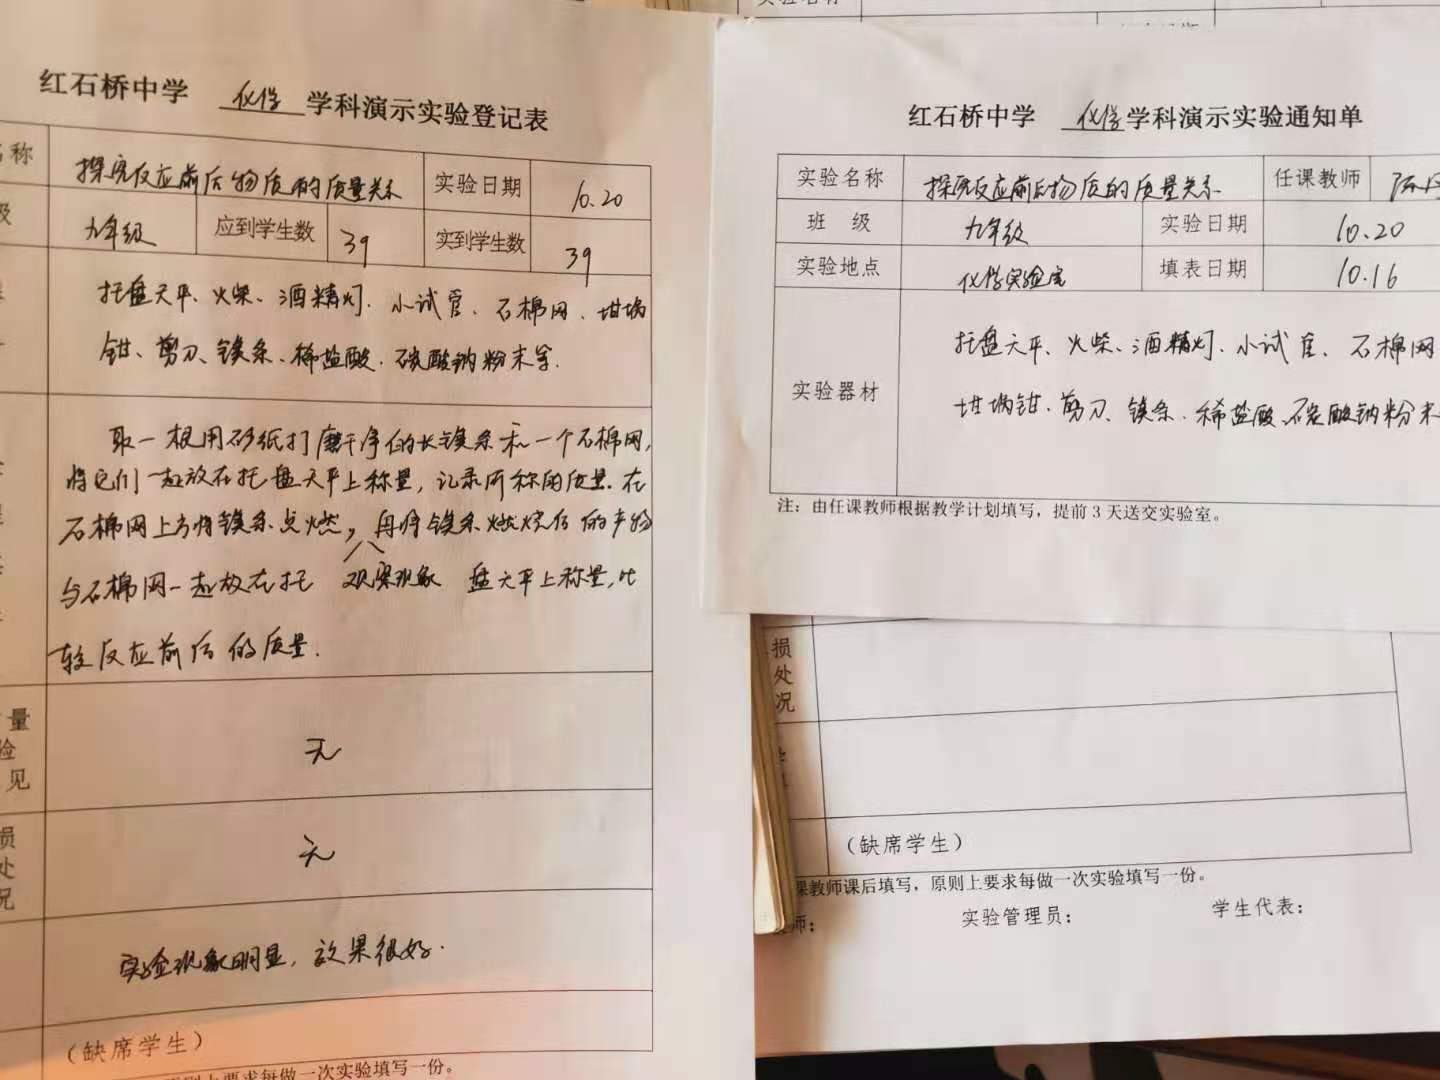 红石桥中学 化学 学科演示实验登记表
名称 探究反应前后物质的质量关系 实验日期 10.20
级 九年级 应到学生数 39 实到学生数 39
托盘天平、火柴、酒精灯、小试管、石棉网、坩埚
钳、剪刀、镁条、稀盐酸、碳酸钠粉末等.
取一根用砂纸打磨干净的长镁条和一个石棉网,
将它们一起放在托盘天平上称量,记录所称的质量.在
石棉网上方将镁条点燃,再将镁条燃烧后的产物
与石棉网一起放在托 观察现象 盘天平上称量,比
较反应前后的质量.
量
验
见
无
损
处
况
无
实验现象明显,效果很好.
(缺席学生)
上要求每做一次实验填写一份。
实验名称
红石桥中学 化学学科演示实验通知单
实验名称 探究反应前后物质的质量关系 任课教师
班 级 九年级 实验日期 10.20
实验地点 化学实验室 填表日期 10.16
实验器材
托盘天平、火柴、酒精灯、小试管、石棉网
坩埚钳、剪刀、镁条、稀盐酸、碳酸钠粉末
注:由任课教师根据教学计划填写,提前 3 天送交实验室。
损
处
况
(缺席学生)
课教师课后填写,原则上要求每做一次实验填写一份。
师: 实验管理员: 学生代表: